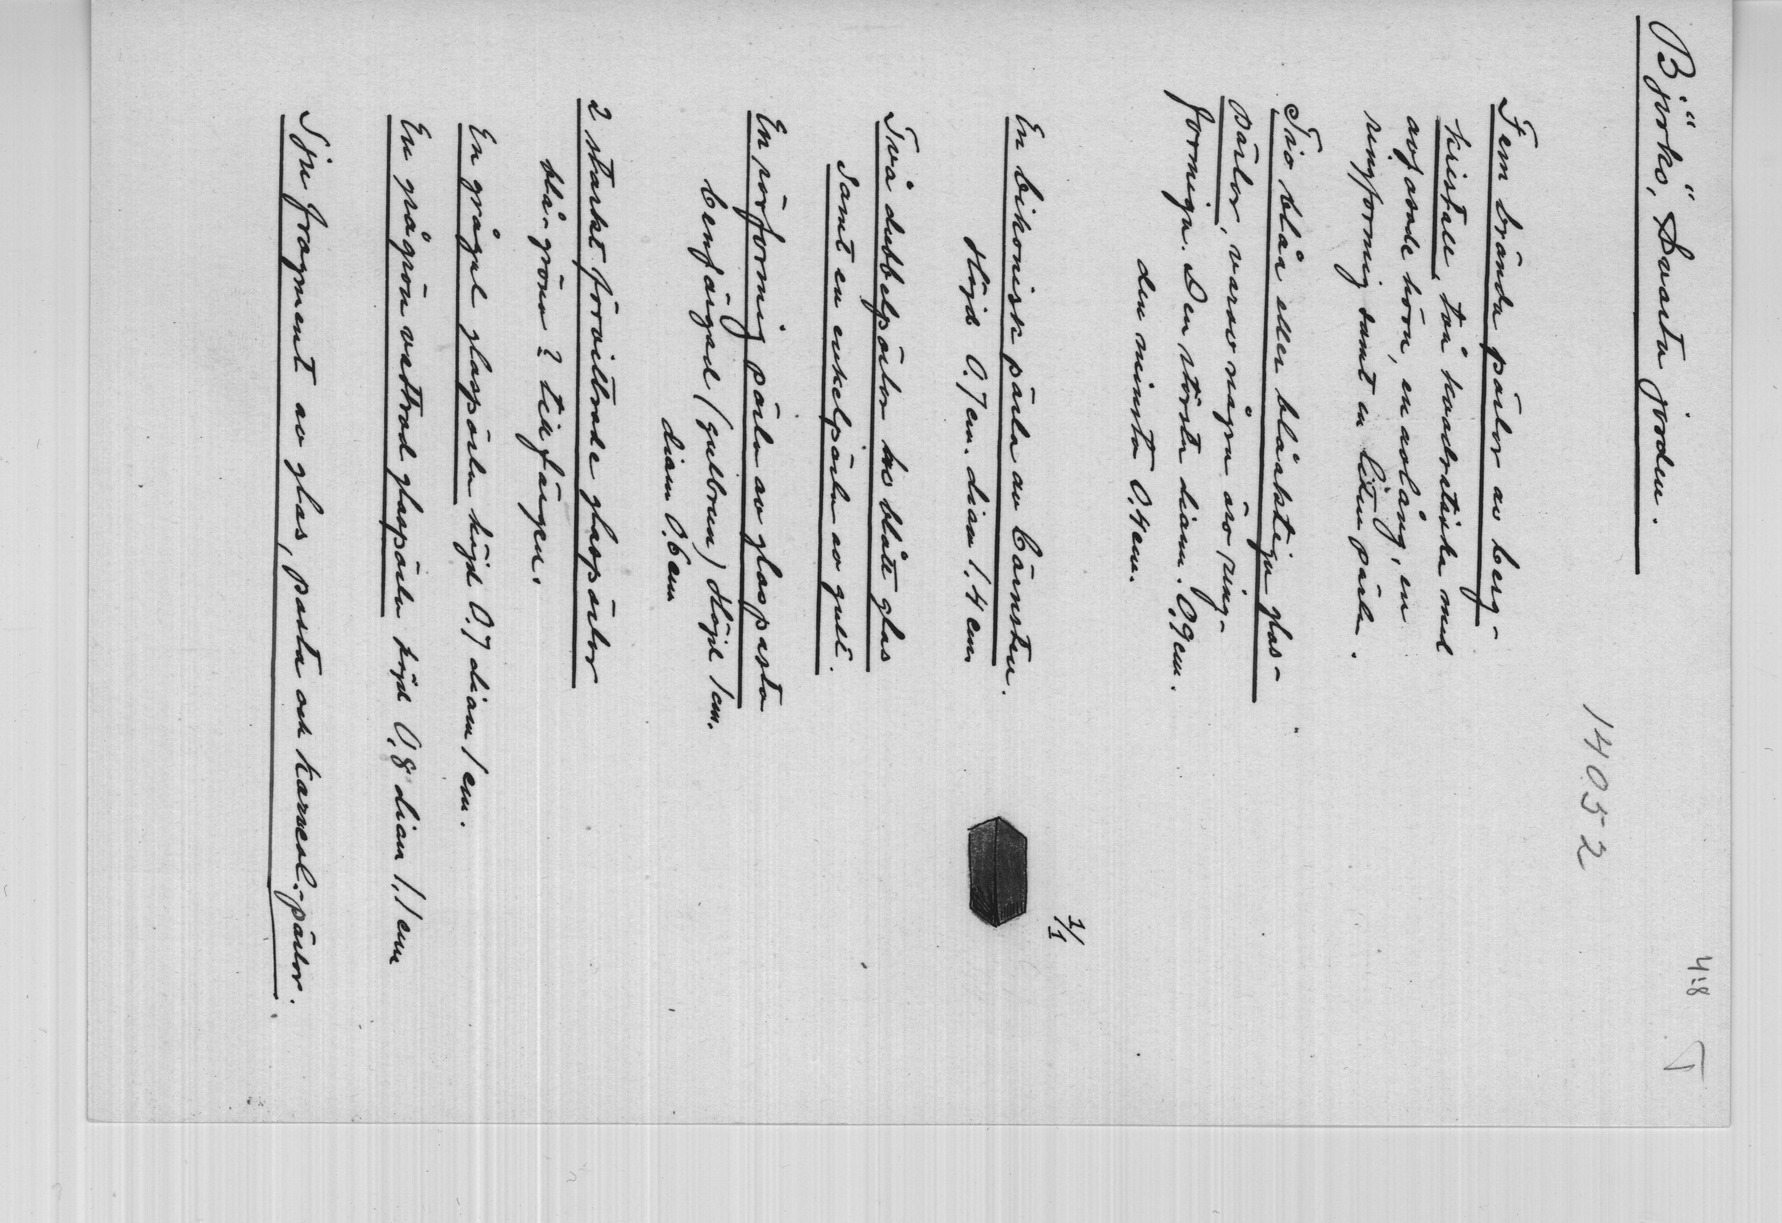 Björkö, Svarta jorden.
4:8
14052
Fem brända pärlor av berg-
kristall, två kvadratiska med
avfasade hörn, en avlång, en
ringformig samt en liten pärla.
Tio blåa eller blåaktiga glas-
pärlor, varav några äro ring-
formiga. Den största diam. 0,9 cm.
den minsta 0,4 cm.
En bikonisk pärla av bärnsten.
Höjd 0,7 cm. diam 1,4 cm.
1/1
Två dubbelpärlor av blått glas
samt en enkelpärla av gult.
En rörformig pärla av glaspasta
benfärgad (gulbrun) Höjd 1 cm.
diam 0,6 cm
2 starkt förvittrade glaspärlor
blå-gröna? till färgen.
En grågul glaspärla höjd 0,7 diam 1 cm.
En grågrön vittrad glaspärla höjd 0,8 diam 1,1 cm
Sju fragment av glas, pasta och karneol-pärlor.